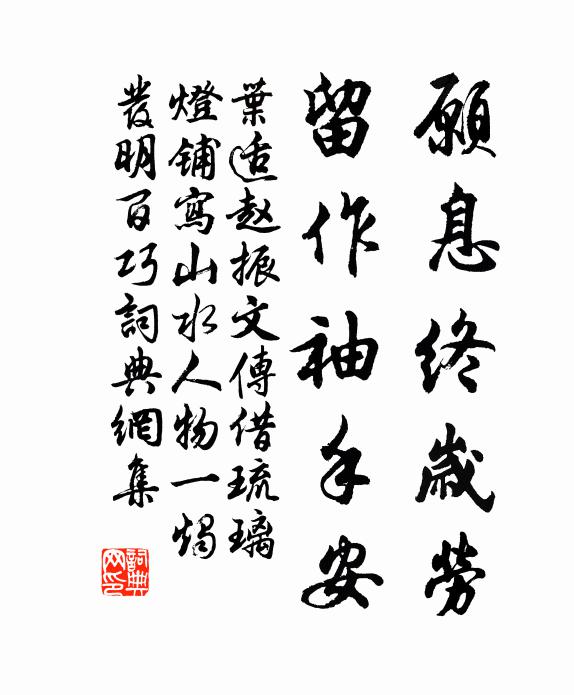 願息終歲勞
留作袖手安
葉适赵振文傳借琉璃
燈鋪寫山水人物一燭
發明百巧詞典網集
詞典網印